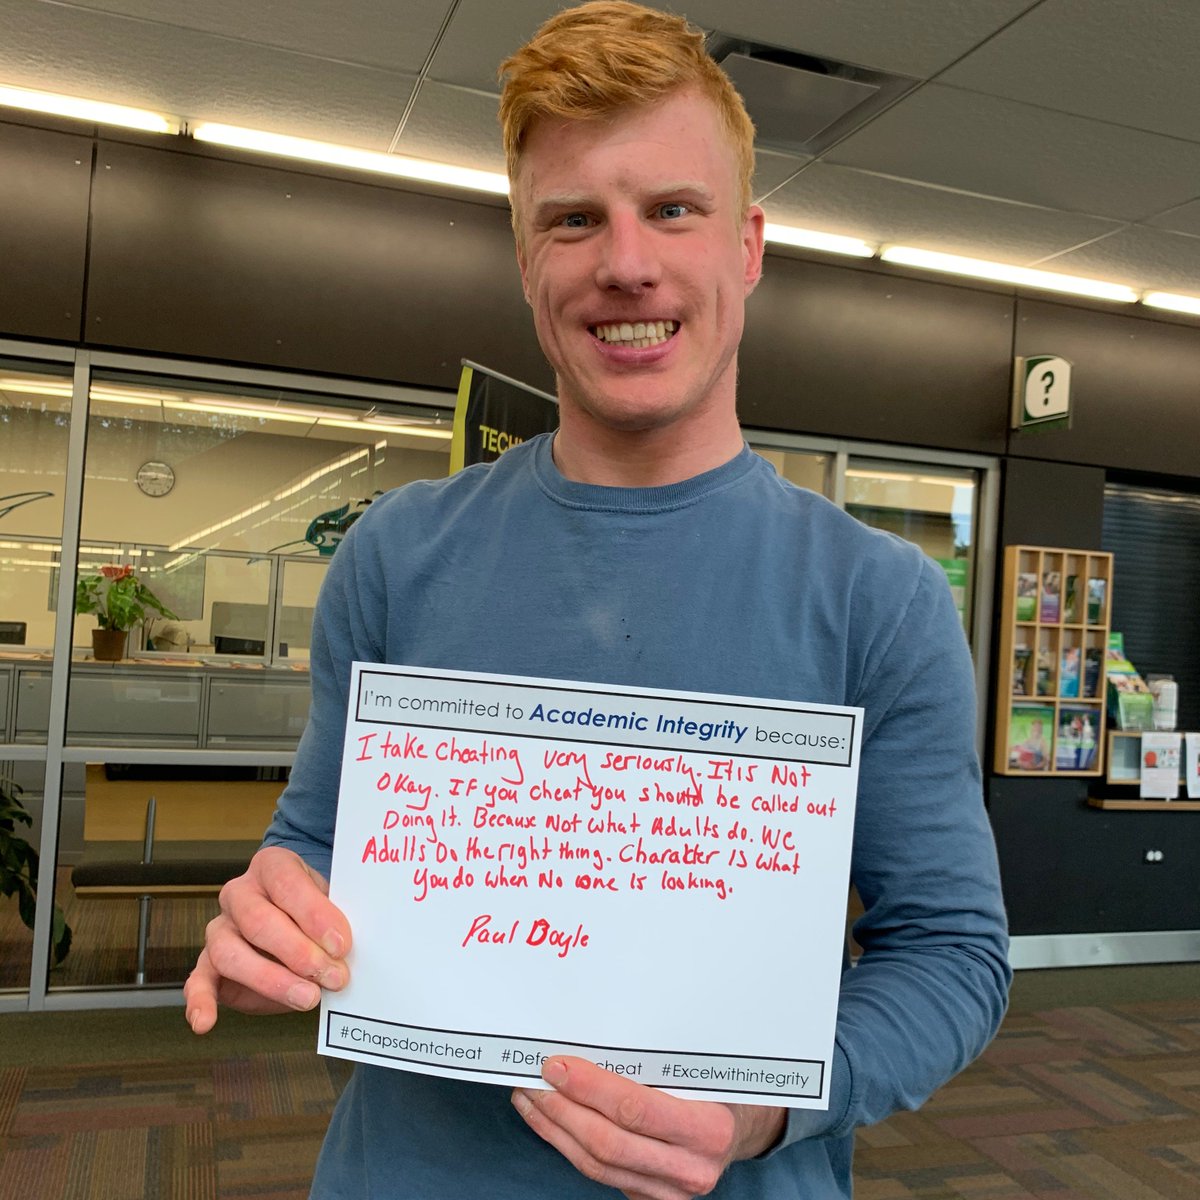 TECHN
?
I'm committed to Academic Integrity because:
I take cheating very seriously. It is Not
Okay. If you cheat you should be called out
Doing It. Because Not what Adults do. We
Adults Do the right thing. Charakter Is what
You do when No one is looking.
Paul Boyle
#Chapsdontcheat #Defe cheat #Excelwithintegrity